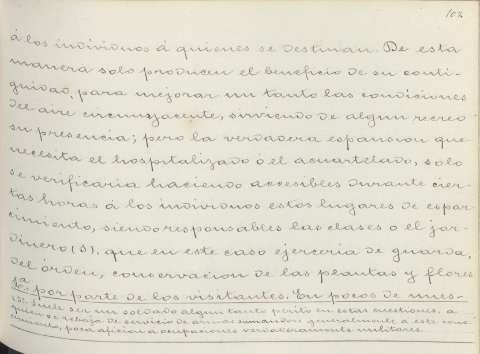 102
á los individuos á quienes se destinan. De esta
manera solo producen el beneficio de su conti-
guidad, para mejorar un tanto las condiciones
del aire circunyacente, sirviendo de algun recreo
su presencia; pero la verdadera espansion que
necesita el hospitalizado ó el acuartelado, solo
se verificaria haciendo accesibles durante cier-
tas horas á los individuos estos lugares de espar-
cimiento, siendo responsables las clases ó el jar-
dinero (3), que en este caso ejerceria de guarda,
del órden, conservacion de las plantas y flores
&.ª por parte de los visitantes. En pocos de nues-
(3) Suele ser un soldado algun tanto perito en estas cuestiones, á
quien se rebaja de servicio de armas
cimiento, poca aficion á ocupaciones verdaderamente militares.